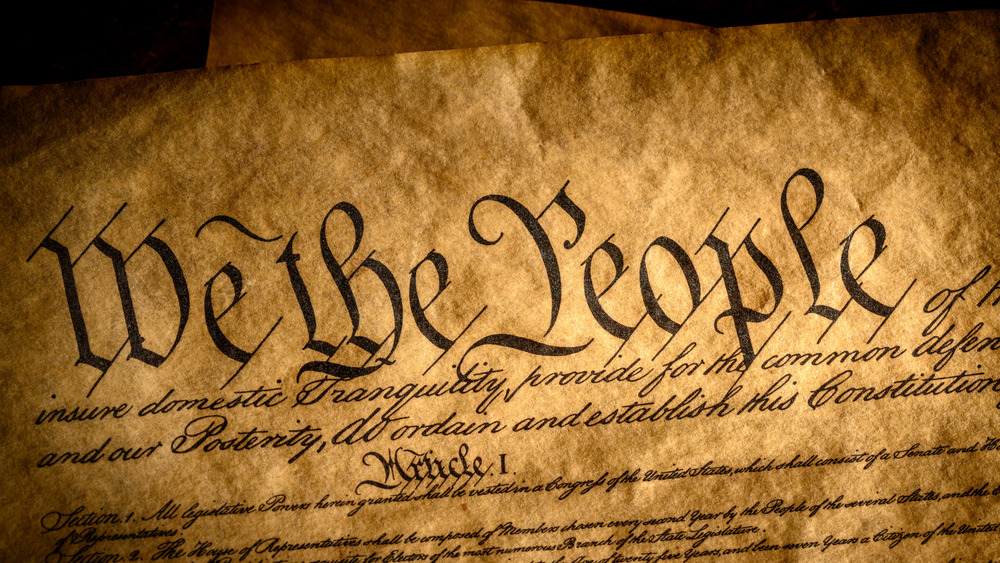 We the People of
insure domestic Tranquility, provide for the common defen
and our Posterity, do ordain and establish this Constitution
Article. I.
Section. 1. All legislative Powers herein granted shall be vested in a Congress of the United States, which shall consist of a Senate and
of Representatives.
Section 2. The House of Representatives shall be composed of Members chosen every second Year by the People of the several States, and the
for Electors of the most numerous Branch of the State Legislature.
of twenty five Years, and been seven Years a Citizen of the United